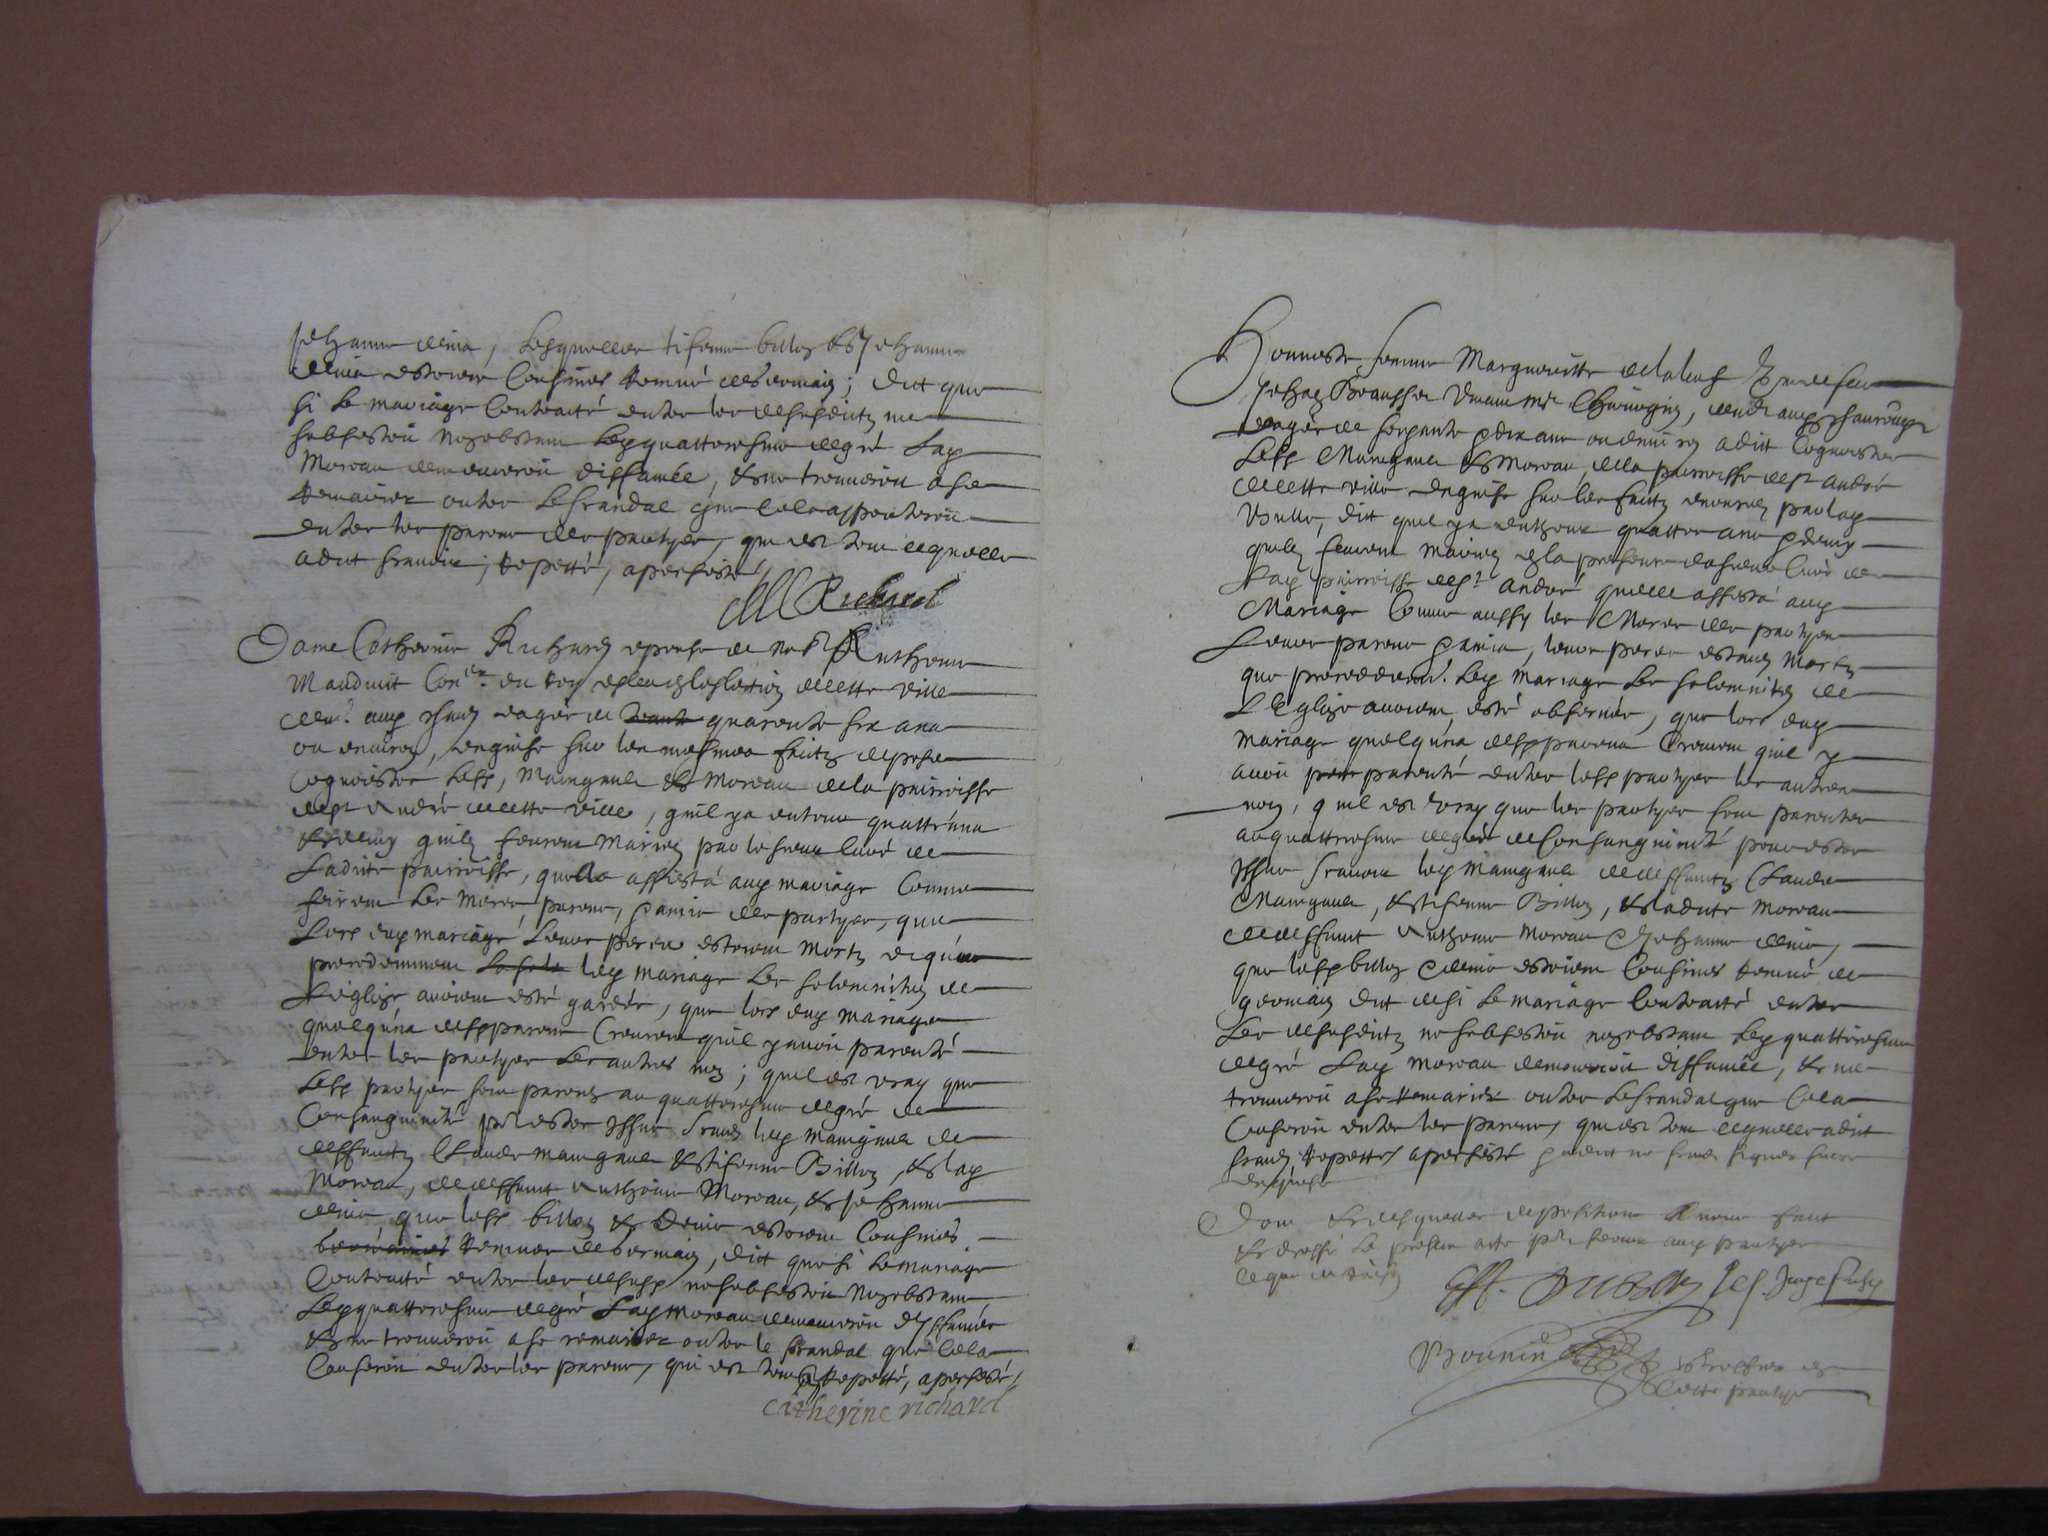 Jehanne denis, lesquelles tifenne billon & Jehanne
denis estoient Cousines remué de germain; dict que
si le mariage Contracté entre les desusdictz ne
subsistoit nonobstant led quattriesme degré lad
Moreau demeureroit diffamée, & ne trouveroit a se
remarier outre le scandal que cela apporteroit
entre les parens des partyes, qui est tout ce quelle
a dict scavoir, repetté, a persisté
Richard
Dame Catherine Richard espouse de Anthoine
Mauduit Con.er du roy en leslection de cette ville
y dem.t aagée de quarente six ans
ou environ, enquise sur les mesmes faictz depose
Cognoistre lesd, Maingaud & Moreau de la parroisse
de st André de cette ville, quil y a environ quattre ans
& demy quilz feurent Mariez par le sieur Curé de
ladicte parroisse, quelle assista aud mariage Comme
feirent les meres, parens, & amis des partyes, que
Lors dud mariage leurs peres estoient mortz et que
precedemment led mariage les solemnitez de
leglize avoient esté gardée, que lors dud mariage
quelquns desd parens Creurent quil y avoit parenté
entre les partyes les autres non; quil est vray que
Lesd partyes sont parens au quattriesme degré de
Consanguinité pr estre Issus scavoir led Maingaud de
deffunctz Claude maingaud & tifenne Billon, & lad
Moreau, de deffunct Anthoine Moreau, & Jehanne
denis, que lesd billon & Denis estoient Cousines
remuée de germain, dict que si le mariage
Contracté entre les desusd ne subsistoit nonobstant
Led quattriesme degré lad Moreau demeureroit diffamée
& ne trouveroit a se remarier outre le scandal que cela
Causeroit entre les parens, qui est tout repetté, a persisté,
Catherine richard
Honneste femme Margueritte
Jehan vivant me Chirurgien,
aagée de soixante & dix ans ou environ a dict Cognoistre
Lesd Maingaud & Moreau, de la parroisse de st André
de cette ville enquise sur les faictz
dict quil y a environ quattre ans & demy
quilz feurent mariez en la presence du sieur Curé de
lad parroisse de st André quelle assista aud
Mariage Comme aussy les Meres des partyes
Leurs parens & amis, leurs peres estans mortz
que precedemt led mariage les solemnitez de
L'Eglize avoient esté observée, que lors dud
mariage quelquns desd parens Creurent quil y
avoit parenté entre lesd partyes les autres
non, quil est vray que les partyes sont parentes
au quattriesme degré de Consanguinité pour estre
Issus scavoir led maingaud de deffunctz Claude
Maingaud, & tifenne Billon, & ladicte Moreau
de deffunct Anthoine Moreau & Jehanne denis,
que lesd billon & denis estoient Cousines remué de
germain dict que si le mariage Contracté entre
Les desusdictz ne subsistoit nonobstant led quattriesme
degré lad Moreau demeureroit diffamée, & ne
trouveroit a se remarier outre le scandal que cela
Causeroit entre les parens, qui est tout ce quelle a dict
scavoir repetté a persisté & a dict ne scavoir signer
enquise
Dont & desquelles depositions avons faict
& dressé le present acte pr servir aud partyes
ce que de raison
Bounin
cette partye